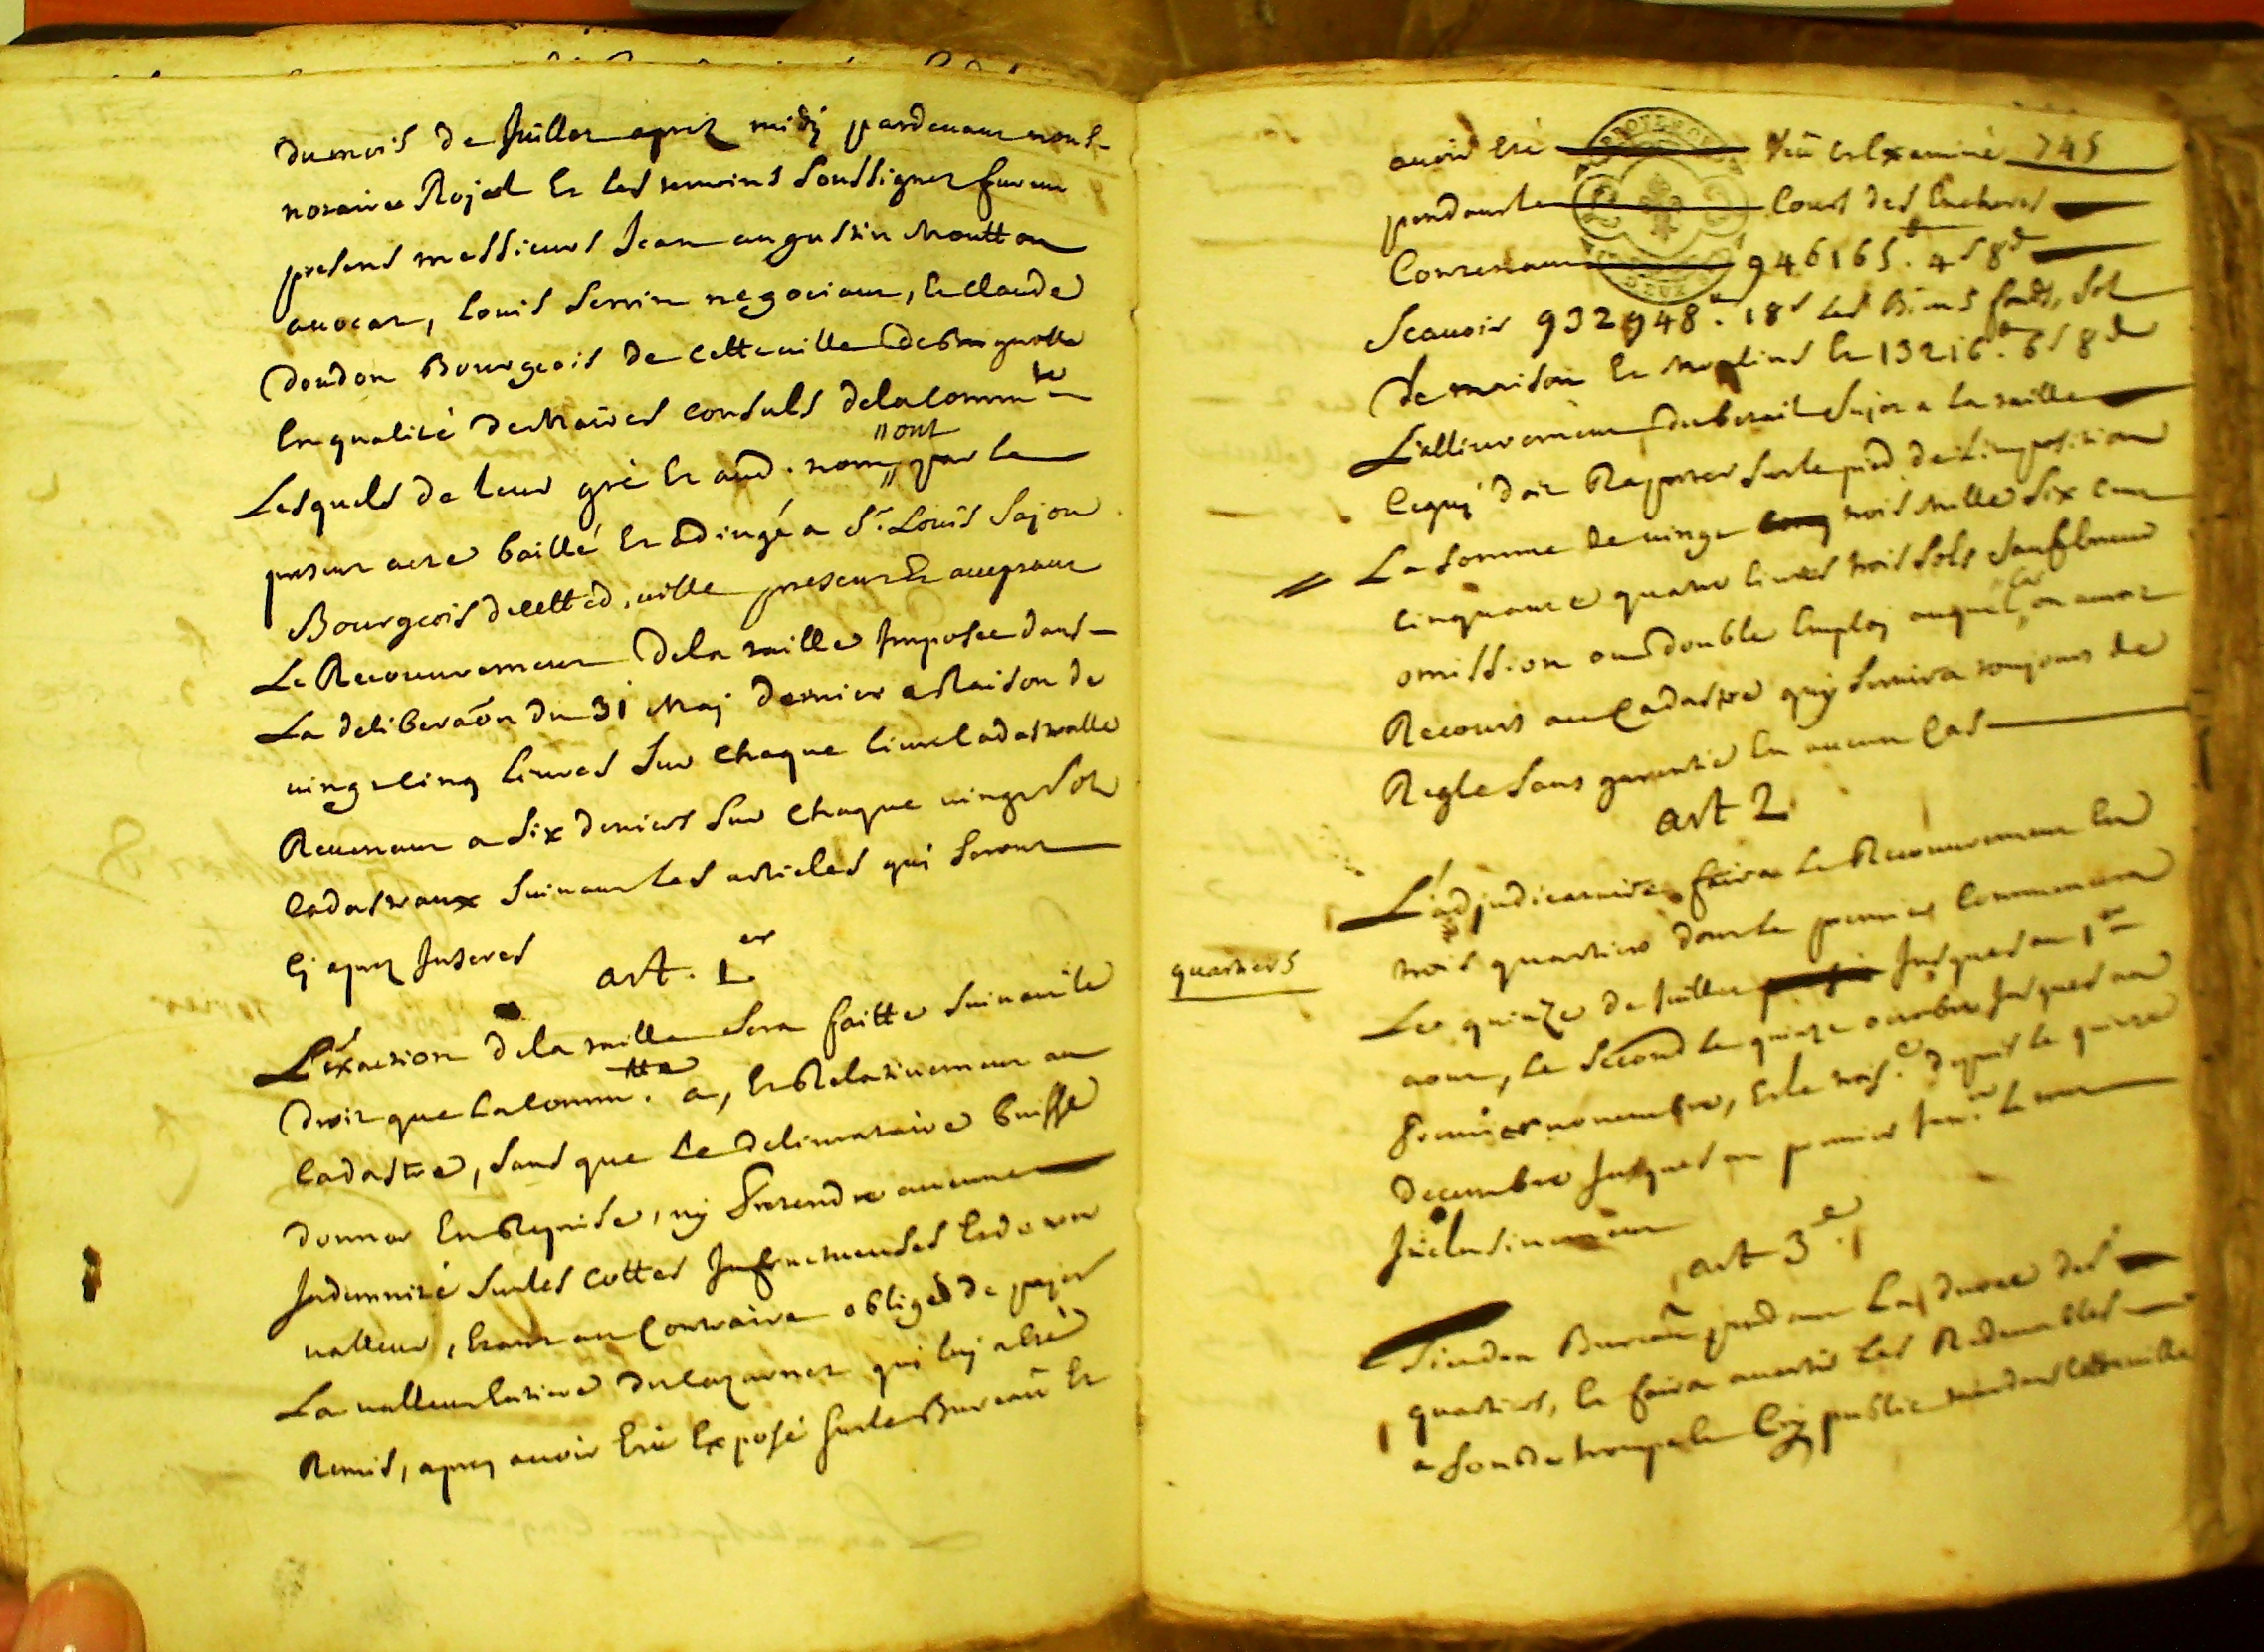 du mois de Juillet aprez midÿ pardevant nous
notaire Royal et les temoins soussignez furent
presens messieurs Jean augustin Moutton
avocat, louis serrin negociant, et claude
doudon Bourgeois de cette ville de Brignolle
en qualité de Maires consuls de la Comm.te
Lesquels de leur gré et aud. nom, par le
"ont
present acte baillé et adjugé a Sr. Louis sajou
Bourgeois de cette d. ville present et acceptant
Le Recouvrement de la taille Imposée dans
La deliberaõn du 31 Maj dernier a Raison de
vingt cinq livres sur chaque livre cadastralle
Revenant a six deniers sur chaque vingt sols
cadastraux suivant les articles qui seront
cj aprez Inseres
art. 1.er
L'exaction de la taille sera faitte suivant le
droit que la Comm.tte a, et Relativement au
cadastre, sans que le deliurataire puisse
donner en Reprise, nÿ pretendre aucune
Indemnité sur les cottes Infructueuses et de non
valleur, etant au contraire obligé de pajer
La valleur entiere du cazernet qui luj a été
Remis, aprez avoir été exposé sur le Bureau et
avoir été Veu et examiné 745
pendant le cours des encheres
Contenant 946165.₶ 4s 8d
Scavoir 932948.₶ 18s les Biens fonds, sol
de maison et moulins et 13216₶. 6s 8d
L'allivrement du betail sujet a la taille
ce quÿ doit Raporter sur le pied de l'imposition
La somme de vingt trois mille six cent
cinquante quatre livres trois sols sauf erreur
omission ou double employ auquel cas on aura
Recours au cadastre quÿ servira toujours de
Regle sans garantie en aucun cas
art 2
L'adjudicataire faira le Recouvrement en
trois quartiers dont le premier commencera
quartiers
Le quinze de Juillet Jusques au 1er
aout, le second le quinze octobre Jusques au
premier novembre, et le trois.e depuis le quinze
decembre Jusques au premier Janv.er le tout
Inclusivement
art 3e.
Tiendra Bureau pendant la durée des
quartiers, et faira avertir les Redevables
a son de trompe et crÿ public dans cette ville